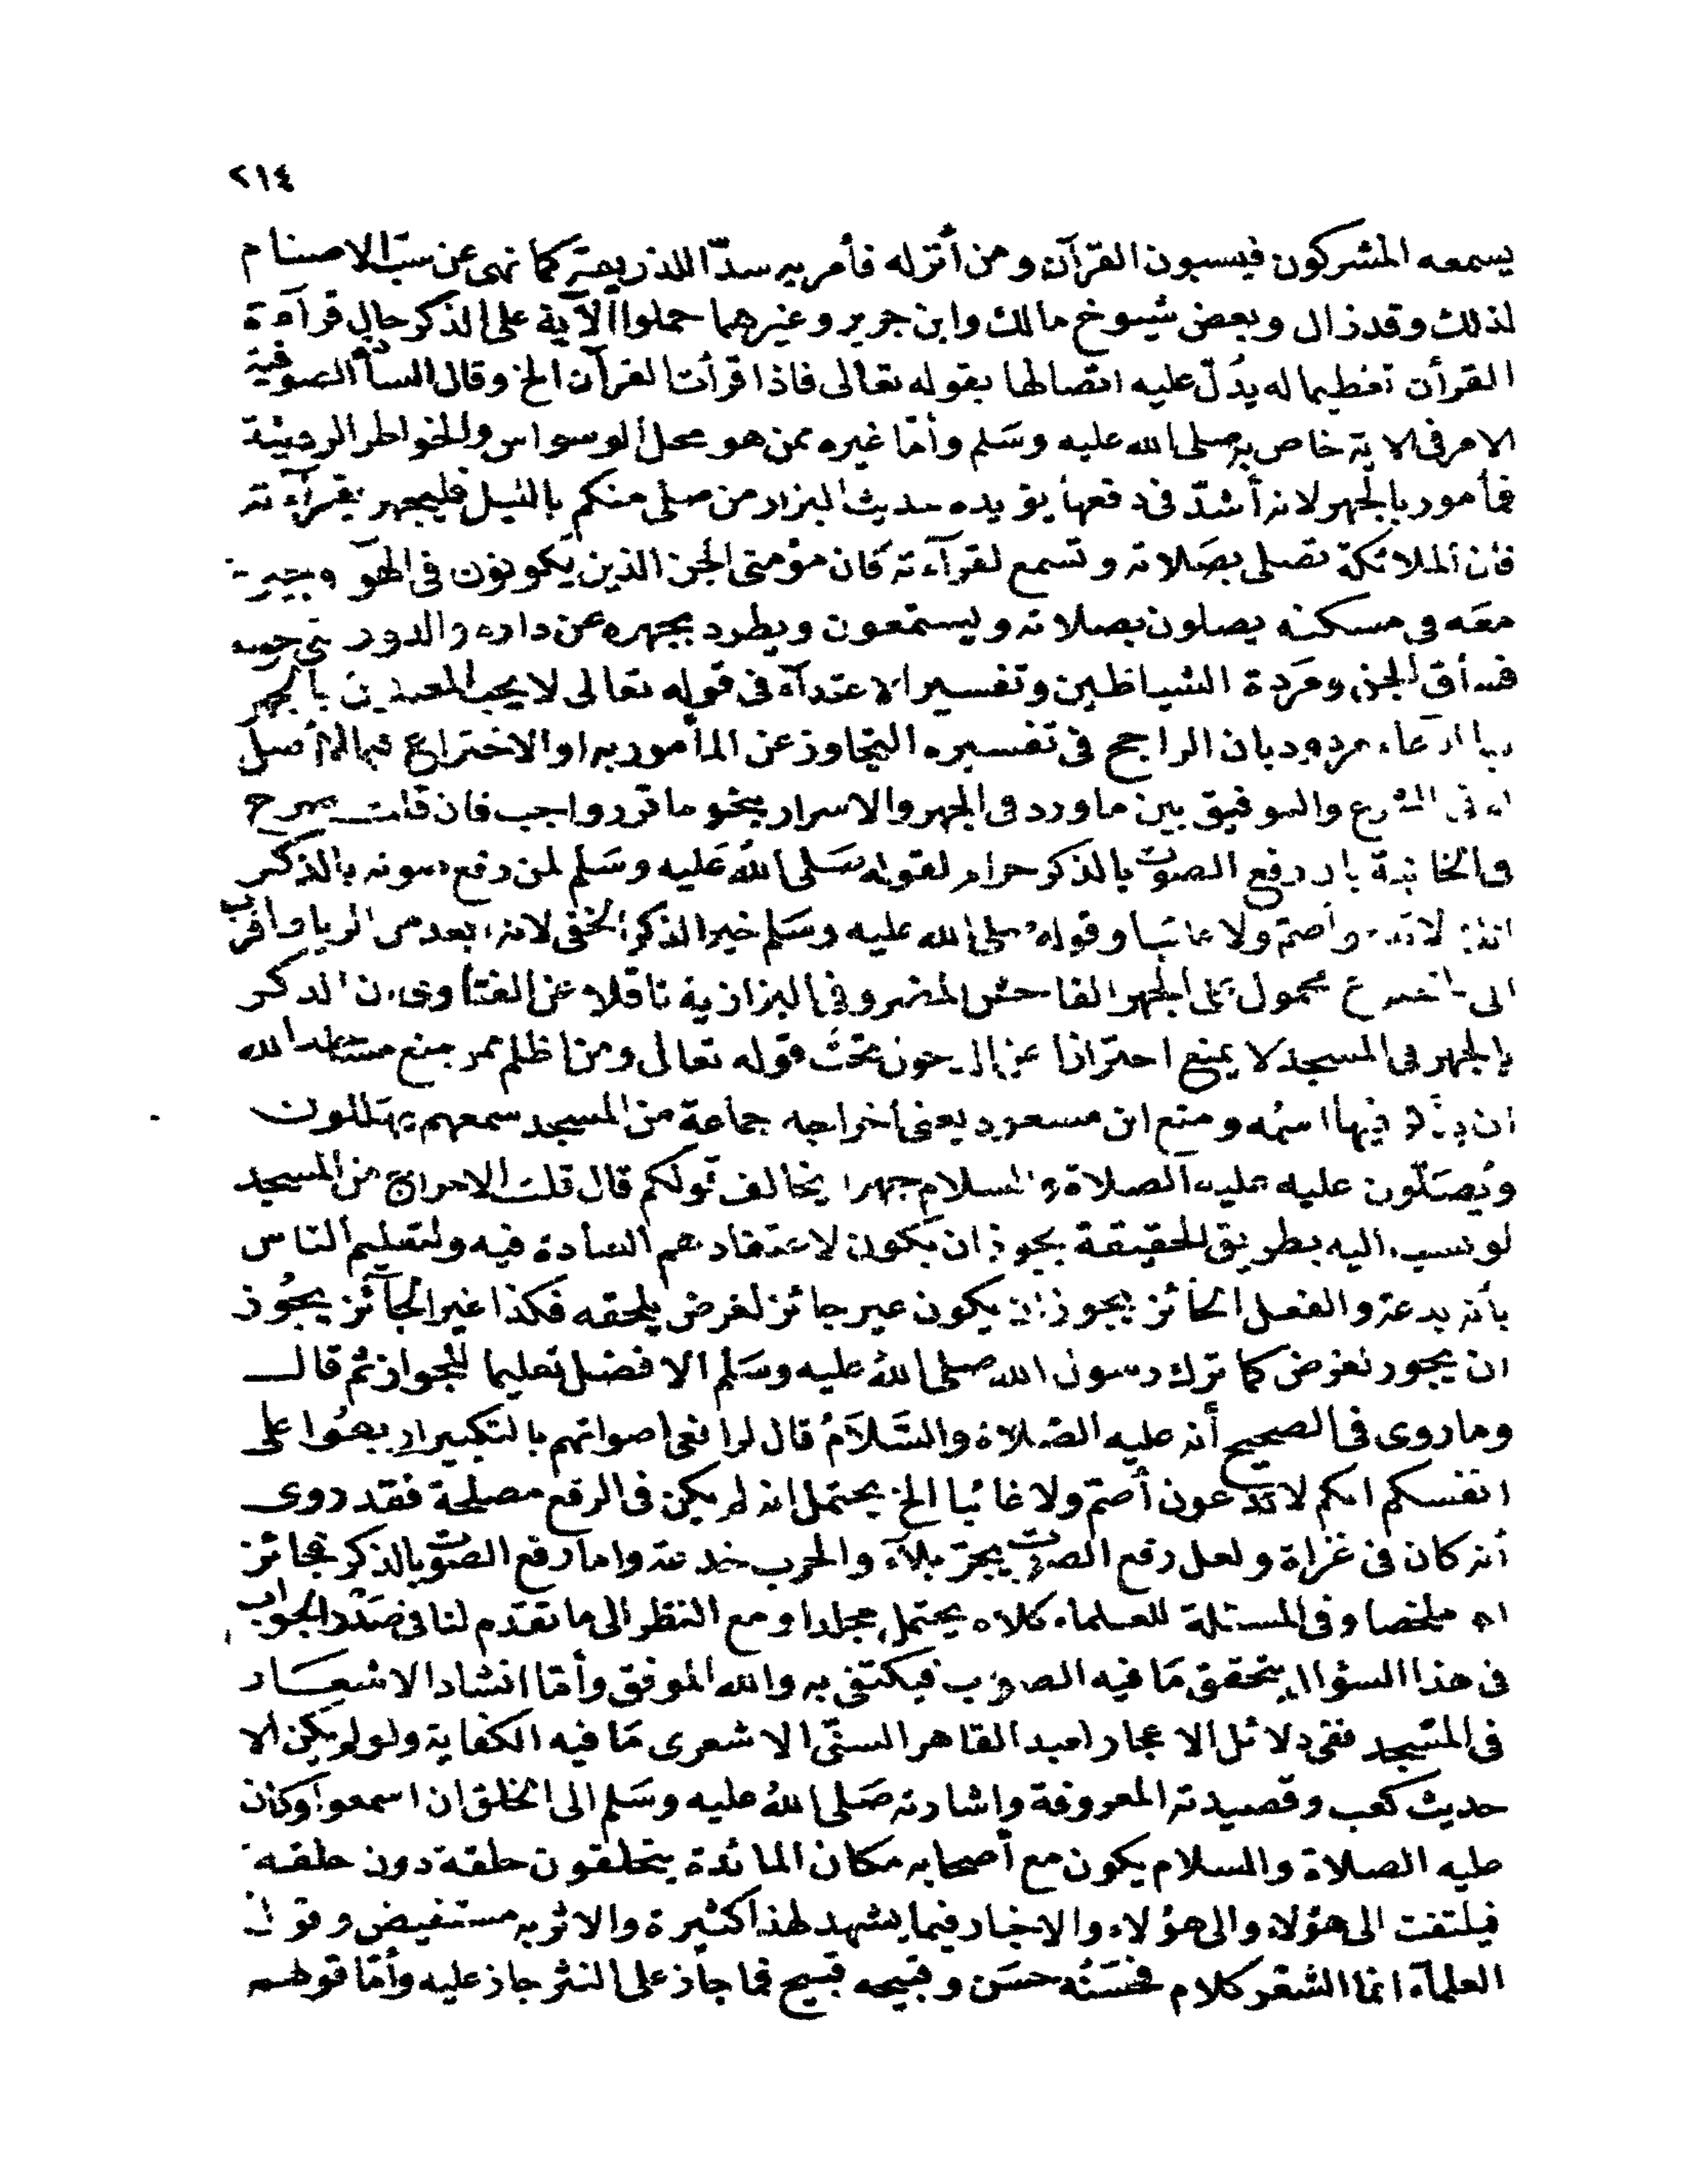 ٢١٤
يسمعه المشركون فيسبون القرآن ومن أنزله فأمر به سدّا للذريعة كما نهى عن سبّ الاصنام
لذلك وقد زال وبعض شيوخ مالك وابن جرير وغيرهما حملوا الآية على الذكر حال قرآءة
القرأن تعظيما له يدُلّ عليه اتصالها بقوله تعالى فاذا قرأت القرآن الخ وقال السادة الصوفية
الامر فى الاية خاص به صلى الله عليه وسَلم وأمّا غيره ممن هو محل الوسواس والخواطر الرديئة
فمأمور بالجهر لانه أشدّ فى دفعها يؤيده حديث البزار من صلى منكم بالليل فليجهر بقرآءته
فان الملائكة تصلى بصَلاته وتسمع لقرآءته فان مؤمنى الجن الذين يكونون فى الهوآ وجيرـ
معَه فى مسكنه يصلون بصلاته ويستمعون ويطرد بجهره عن داره والدور التى حوله
فساق الجن ومَردة الشياطين وتفسير الاعتدآء فى قوله تعالى لا يحب المعتدين بالجهر
بالدعاء مردود بان الراجح فى تفسيره التجاوز عن المأمور به او الاختراع فيما لا أصل
له فى الشرع والتوفيق بين ما ورد فى الجهر والاسرار بنحو ما تقرر واجب فان قلت صرح
فى الخانية بان رفع الصوت بالذكر حرام لقوله صَلى اللهُ عَليه وسَلم لمن رفع صوته بالذكر
انك لا تدعو أصم ولا غائبا وقوله صلى الله عليه وسَلم خير الذكر الخفى لانه ابعد من الريا واقرب
الى الخضوع محمول على الجهر الفاحش المضر وفى البزازية ناقلا عن الفتاوى ان الذكر
بالجهر فى المسجد لا يمنع احترازا عن الدخول تحت قوله تعالى ومن اظلم ممن منع مساجد الله
ان يذكر فيها اسمُه ومنع ابن مسعود يعنى اخراجه جماعة من المسجد سمعهم يهللون
ويُصَلّون عليه عليه الصلاة والسلام جهرا يخالف قولكم قال قلت الاخراج من المسجد
لو نسب اليه بطريق الحقيقة يجوز ان يكون لاعتقادهم العبادة فيه ولتعليم الناس
بأنه بدعة والفعل الجائز يجوز ان يكون غير جائز لغرض يلحقه فكذا غير الجآئز يجُوز
ان يجوز لغرض كما ترك رسول الله صلى اللهُ عليه وسَلم الافضل تعليما للجواز ثم قال
وما روى فى الصحيح أنه عليه الصّلاة والسَّلاَمُ قال لرافعى اصواتهم بالتكبير اربعُوا على
انفسكم انكم لا تدعون أصمّ ولا غائبا الخ يحتمل انه لم يكن فى الرفع مصلحة فقد روى
أنه كان فى غزاة ولعل رفع الصوت يجرّ بلآء والحرب خدعة واما رفع الصوت بالذكر فجائز
اه ملخصا وفى المسئلة للعلماء كلام يحتمل مجلدا ومع النظر الى ما تقدّم لنا فى صَدْر الجواب
فى هذا السؤال يتحقق مَا فيه الصواب فيكتفى به والله الموفق وأمّا انشاد الاشعَار
فى المسْجد ففى دلائل الاعجاز لعبد القاهر السنّى الاشعرى مَا فيه الكفاية ولو لم يكن الا
حديث كعب وقصيدته المعروفة واشارته صَلى اللهُ عليه وسَلم الى الخلق ان اسمعوا وكان
عليه الصلاة والسلام يكون مع أصحابه مكان المائدة يتحلقون حلقة دون حلقة
فيلتفت الى هؤلاء والى هؤلاء والاخبار فيما يشهد لهذا كثيرة والاثر به مستفيض وقول
العلمآء انما الشعر كلام فحَسَنُه حسَن وقبيحه قبيح فما جاز على النثر جاز عليه وأمّا قولهم